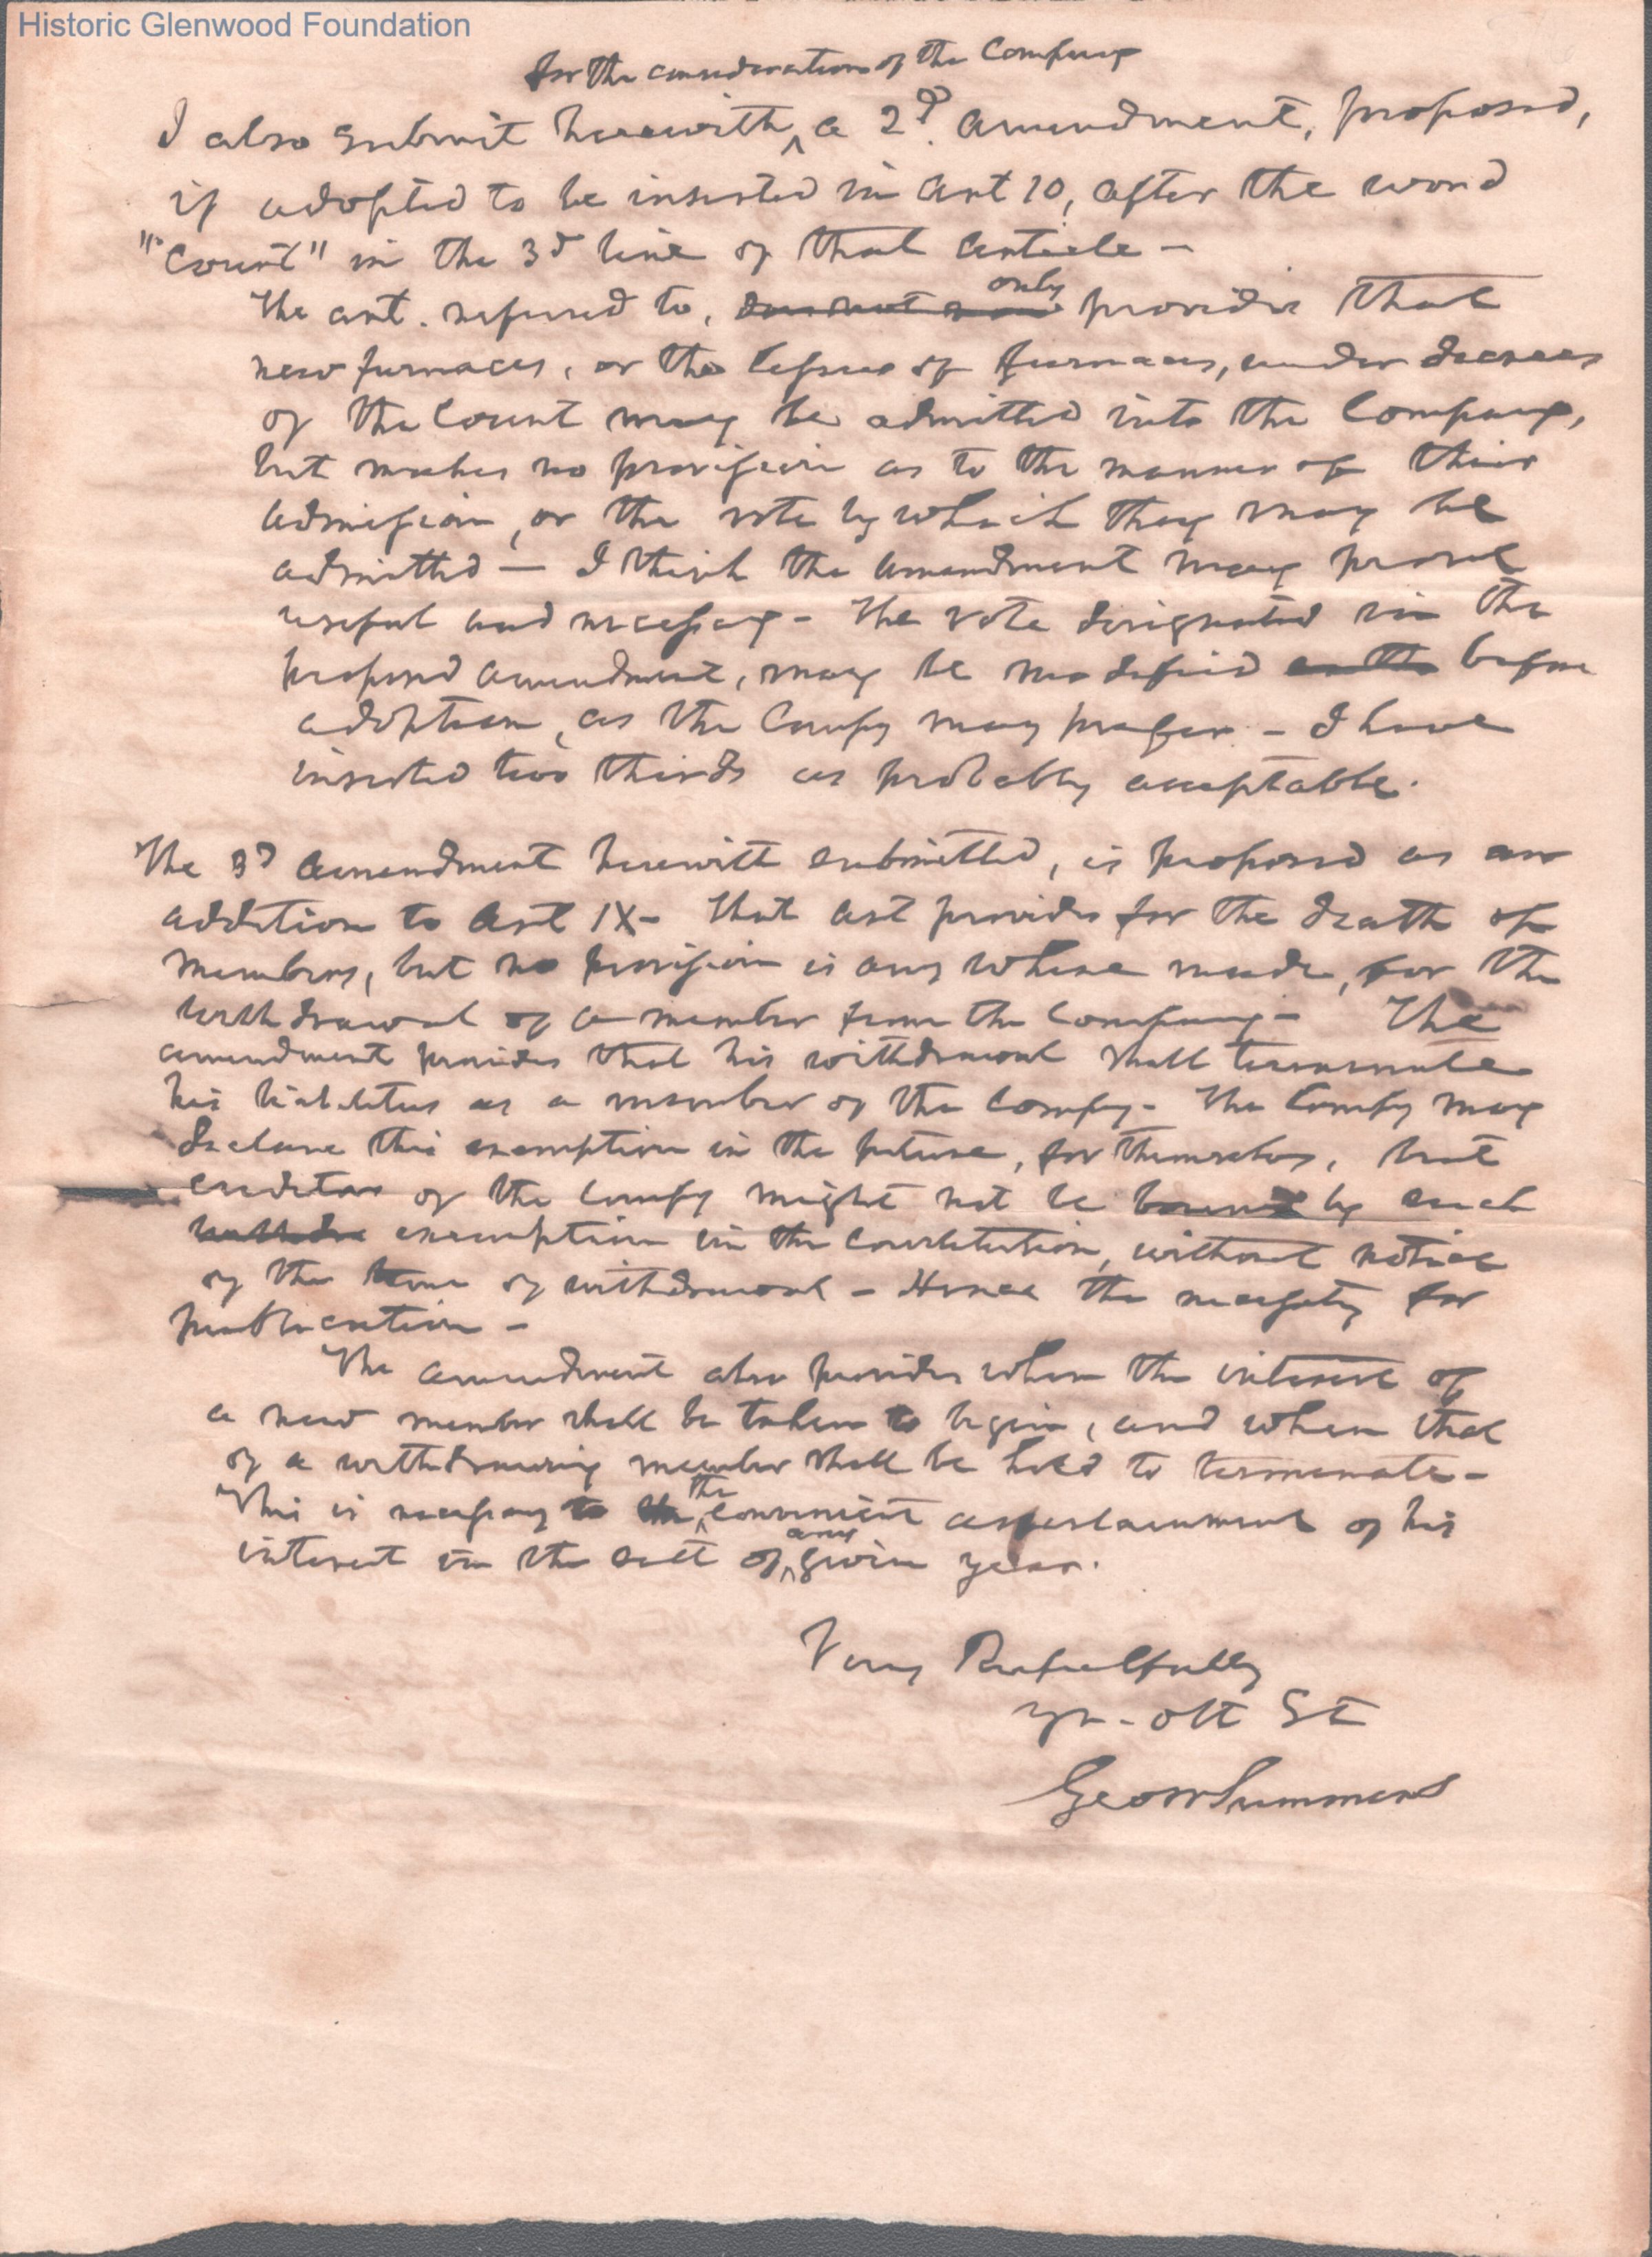 Historic Glenwood Foundation
for the consideration of the Company
I also submit herewith ^ a 2d. amendment, proposed,
if adopted to be inserted in art 10, after the word
"Court" in the 3d line of that article -
only
The art. referred to, provides that
new furnaces, or the lessees of furnaces, under decrees
of the Court may be admitted into the Company,
but makes no provision as to the manner of their
admission, or the vote by which they may be
admitted — I think the amendment may prove
useful and necessary - The vote designated in the
proposed amendment, may be modified before
adoption, as the Compy may prefer - I have
inserted two thirds as probably acceptable.
The 3d amendment herewith submitted, is proposed as an
addition to Art IX - That art provides for the death of
members, but no provision is any where made, for the
withdrawal of a member from the Company - The
amendment provides that his withdrawal shall terminate
his liabilities as a member of the Compy - The Compy may
declare this exemption in the future, for themselves, but
creditors of the Compy might not be bound by such
exemption in the constitution, without notice
of the time of withdrawal - Hence the necessity for
publication -
The amendment also provides when the interest of
a new member shall be taken to begin, and when that
of a withdrawing member shall be held to terminate -
the
This is necessary to ^ convenient ascertainment of his
any
interest in the salt of ^ given year.
Very Respectfully
yr - obt St
Geo W Summers